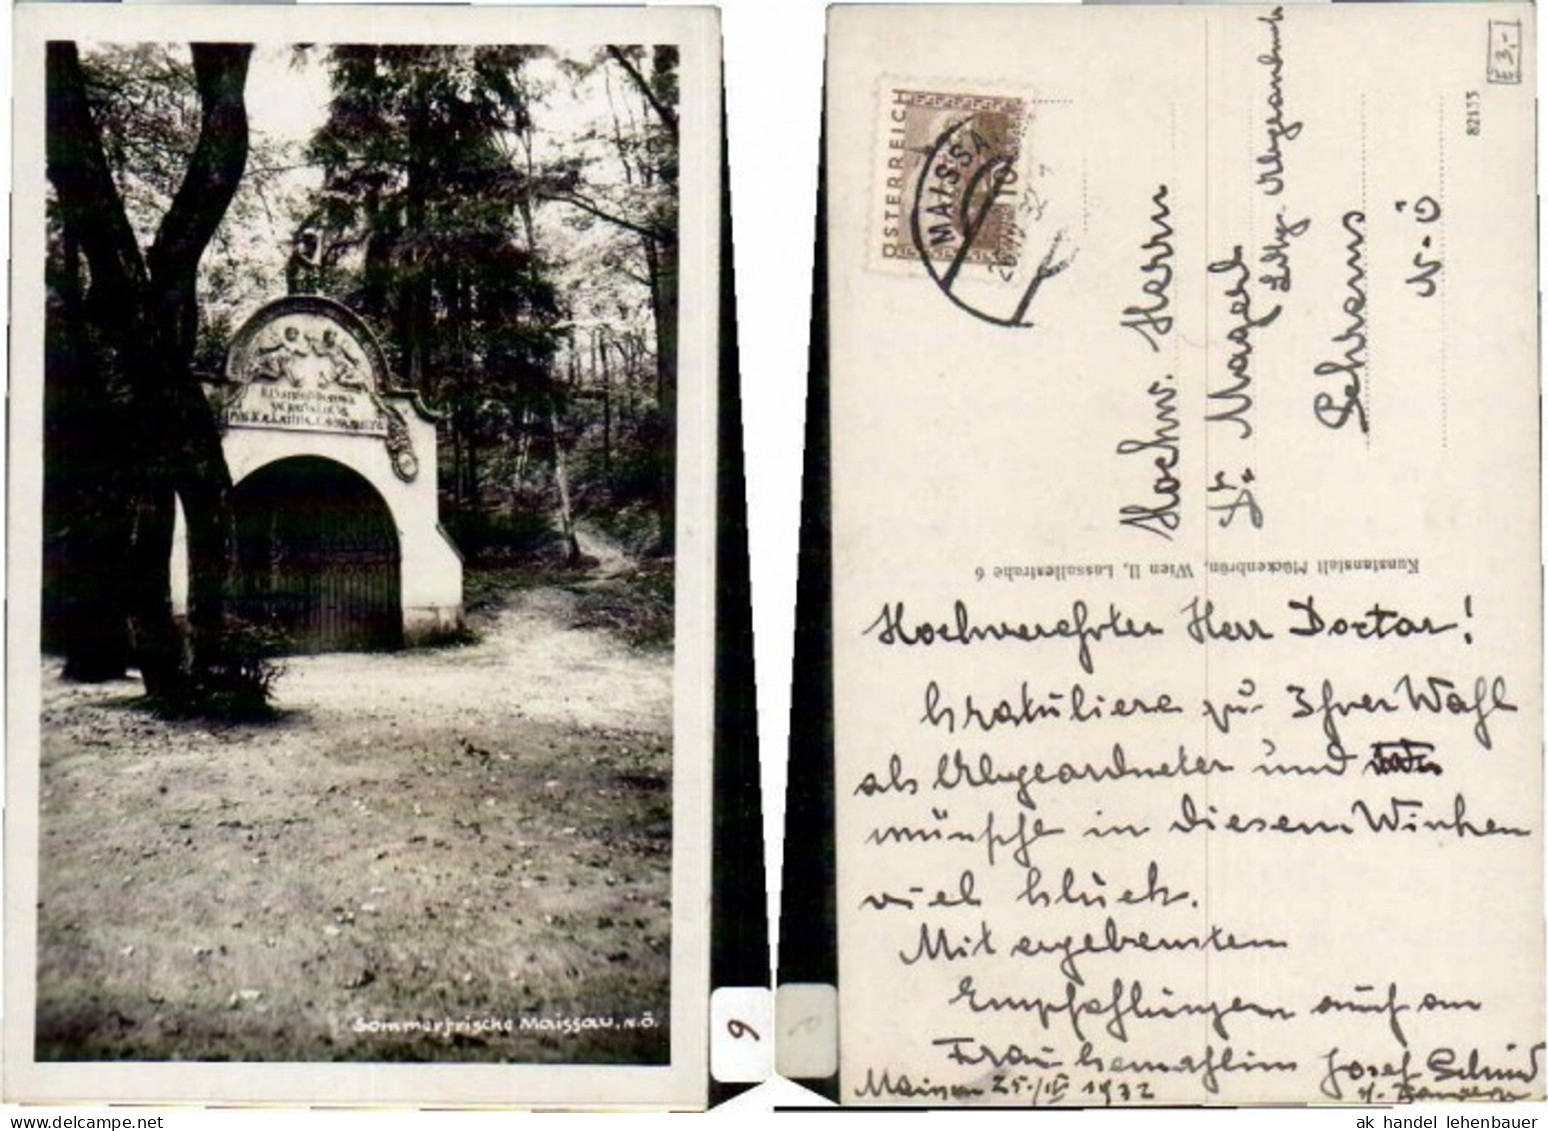 Sommerfrische Maissau, N.Ö.
6
ÖSTERREICH
10
MAISSA
3,-
82133
Hochw. Herrn
Dr. Mogel
Ldtg. Abgeordneter
N-Ö
Kunstanstalt Mückenbrün, Wien II, Lassallestraße 6
Hochverehrter Herr Doctor!
Gratuliere zu Ihrer Wahl
als Abgeordneter und
wünsche in diesem Wirken
viel Glück.
Mit ergebensten
Empfehlungen auch an
Frau Gemahlin Josef
Maissau 25./IV 1932
ak handel lehenbauer